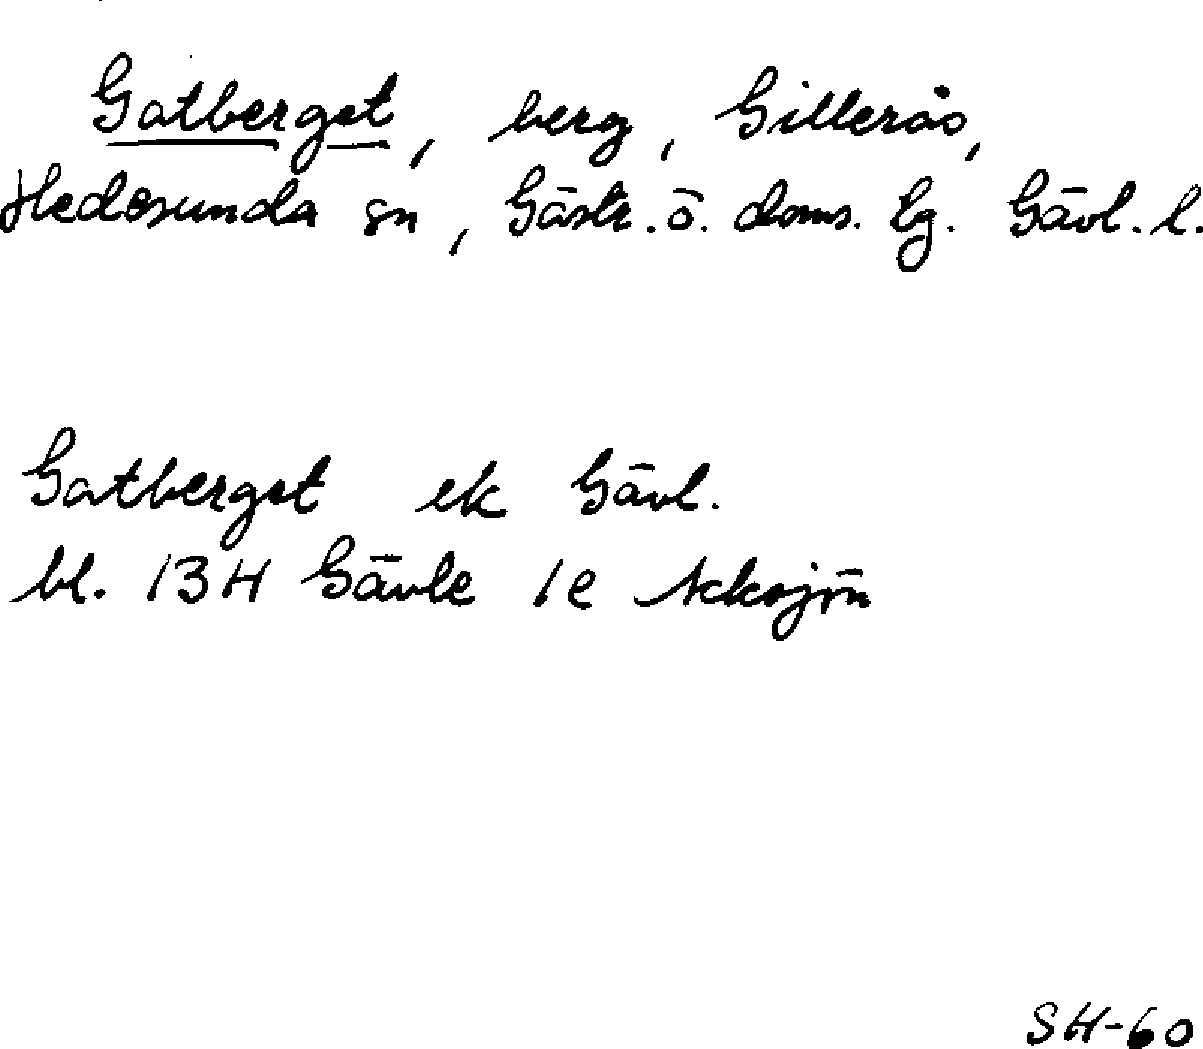 Gatberget, berg, Gillerås,
Hedesunda sn, Gästr. ö. doms. lg. Gävl. l.
Gatberget ek Gävl.
bl. 13 H Gävle 1e Acksjön
SH-60